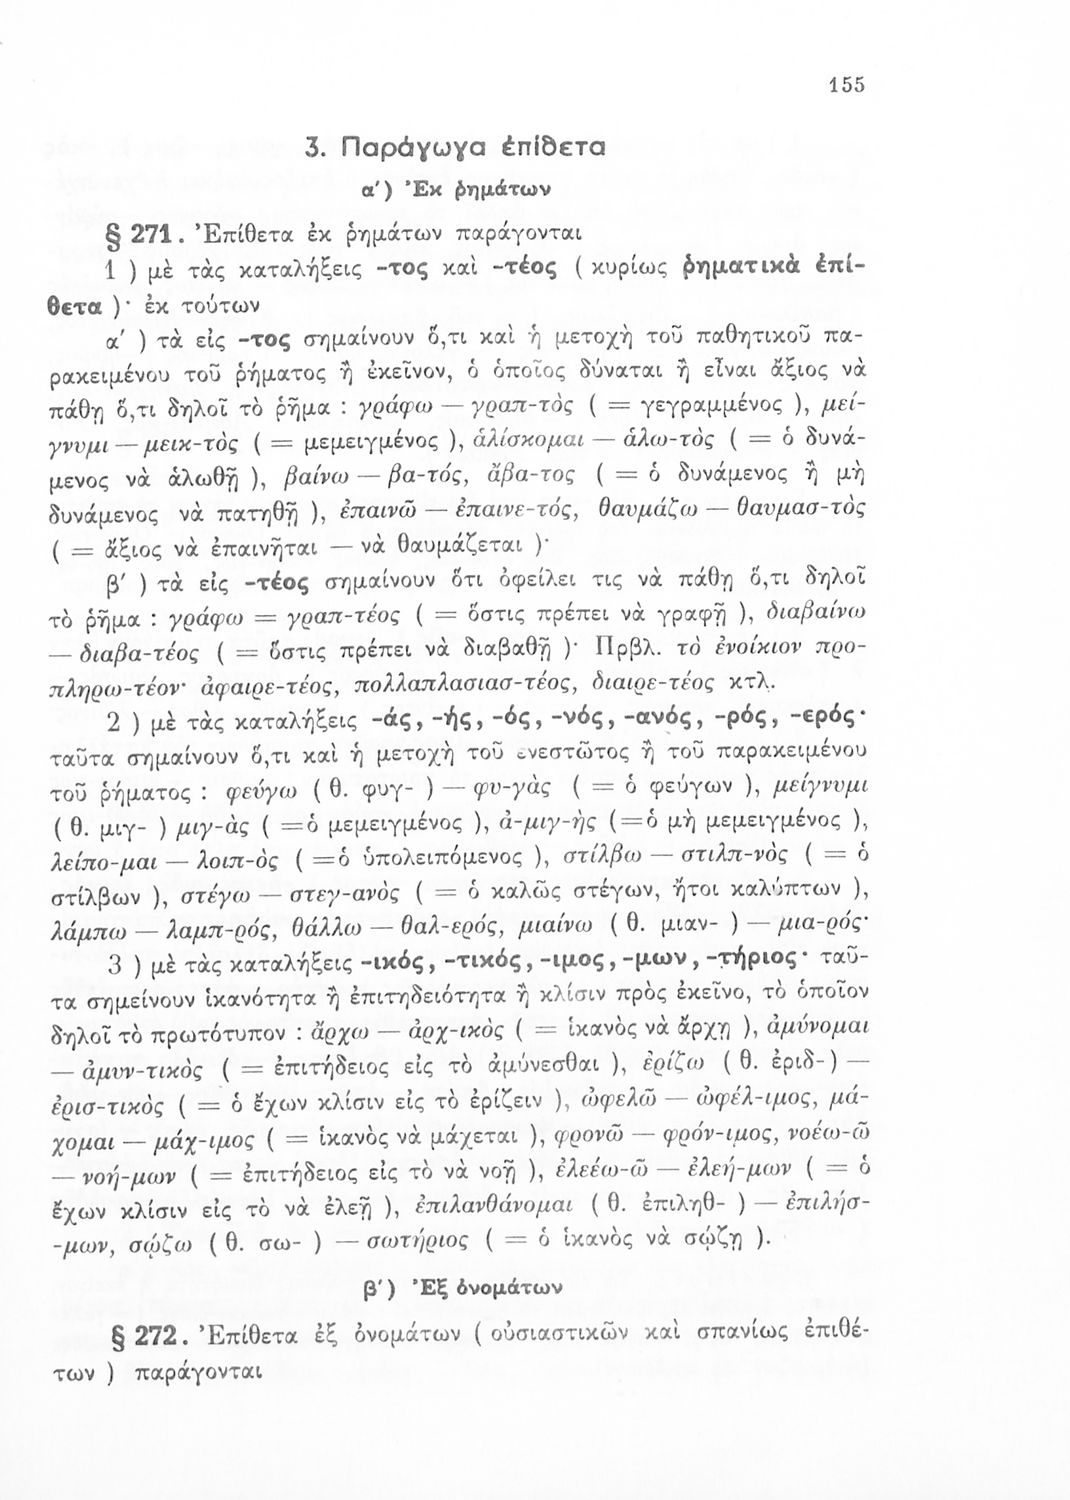 155
3. Παράγωγα ἐπίθετα
α′) Ἐκ ῥημάτων
§ 271. Ἐπίθετα ἐκ ῥημάτων παράγονται
1 ) μὲ τὰς καταλήξεις -τος καὶ -τέος ( κυρίως ῥηματικὰ ἐπί-
θετα )· ἐκ τούτων
α′ ) τὰ εἰς -τος σημαίνουν ὅ,τι καὶ ἡ μετοχὴ τοῦ παθητικοῦ πα-
ρακειμένου τοῦ ῥήματος ἢ ἐκεῖνον, ὁ ὁποῖος δύναται ἢ εἶναι ἄξιος νὰ
πάθῃ ὅ,τι δηλοῖ τὸ ῥῆμα : γράφω — γραπ-τὸς ( = γεγραμμένος ), μεί-
γνυμι — μεικ-τὸς ( = μεμειγμένος ), ἁλίσκομαι — ἁλω-τὸς ( = ὁ δυνά-
μενος νὰ ἁλωθῇ ), βαίνω — βα-τός, ἄβα-τος ( = ὁ δυνάμενος ἢ μὴ
δυνάμενος νὰ πατηθῇ ), ἐπαινῶ — ἐπαινε-τός, θαυμάζω — θαυμασ-τὸς
( = ἄξιος νὰ ἐπαινῆται — νὰ θαυμάζεται )·
β′ ) τὰ εἰς -τέος σημαίνουν ὅτι ὀφείλει τις νὰ πάθῃ ὅ,τι δηλοῖ
τὸ ῥῆμα : γράφω = γραπ-τέος ( = ὅστις πρέπει νὰ γραφῇ ), διαβαίνω
— διαβα-τέος ( = ὅστις πρέπει νὰ διαβαθῇ )· Πρβλ. τὸ ἐνοίκιον προ-
πληρω-τέον· ἀφαιρε-τέος, πολλαπλασιασ-τέος, διαιρε-τέος κτλ.
2 ) μὲ τὰς καταλήξεις -άς, -ής, -ός, -νός, -ανός, -ρός, -ερός·
ταῦτα σημαίνουν ὅ,τι καὶ ἡ μετοχὴ τοῦ ἐνεστῶτος ἢ τοῦ παρακειμένου
τοῦ ῥήματος : φεύγω ( θ. φυγ- ) — φυ-γὰς ( = ὁ φεύγων ), μείγνυμι
( θ. μιγ- ) μιγ-ὰς ( =ὁ μεμειγμένος ), ἀ-μιγ-ὴς (=ὁ μὴ μεμειγμένος ),
λείπο-μαι — λοιπ-ὸς ( =ὁ ὑπολειπόμενος ), στίλβω — στιλπ-νὸς ( = ὁ
στίλβων ), στέγω — στεγ-ανὸς ( = ὁ καλῶς στέγων, ἤτοι καλύπτων ),
λάμπω — λαμπ-ρός, θάλλω — θαλ-ερός, μιαίνω ( θ. μιαν- ) — μια-ρός·
3 ) μὲ τὰς καταλήξεις -ικός, -τικός, -ιμος, -μων, -τήριος· ταῦ-
τα σημείνουν ἱκανότητα ἢ ἐπιτηδειότητα ἢ κλίσιν πρὸς ἐκεῖνο, τὸ ὁποῖον
δηλοῖ τὸ πρωτότυπον : ἄρχω — ἀρχ-ικὸς ( = ἱκανὸς νὰ ἄρχῃ ), ἀμύνομαι
— ἀμυν-τικὸς ( = ἐπιτήδειος εἰς τὸ ἀμύνεσθαι ), ἐρίζω ( θ. ἐριδ-) —
ἐρισ-τικὸς ( = ὁ ἔχων κλίσιν εἰς τὸ ἐρίζειν ), ὠφελῶ — ὠφέλ-ιμος, μά-
χομαι — μάχ-ιμος ( = ἱκανὸς νὰ μάχεται ), φρονῶ — φρόν-ιμος, νοέω-ῶ
— νοή-μων ( = ἐπιτήδειος εἰς τὸ νὰ νοῇ ), ἐλεέω-ῶ — ἐλεή-μων ( = ὁ
ἔχων κλίσιν εἰς τὸ νὰ ἐλεῇ ), ἐπιλανθάνομαι ( θ. ἐπιληθ- ) — ἐπιλήσ-
-μων, σῴζω ( θ. σω- ) — σωτήριος ( = ὁ ἱκανὸς νὰ σῴζῃ ).
β′) Ἐξ ὀνομάτων
§ 272. Ἐπίθετα ἐξ ὀνομάτων ( οὐσιαστικῶν καὶ σπανίως ἐπιθέ-
των ) παράγονται